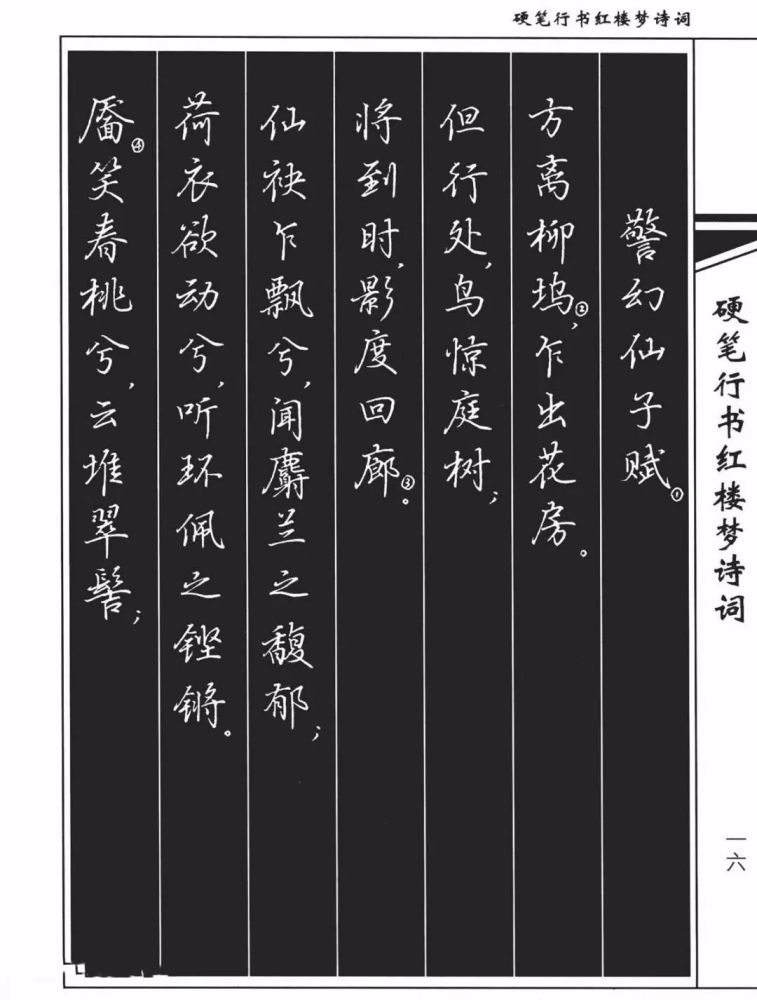 硬笔行书红楼梦诗词
硬笔行书红楼梦诗词
一六
警幻仙子赋①
方离柳坞②，乍出花房。
但行处，鸟惊庭树；
将到时，影度回廊③。
仙袂乍飘兮，闻麝兰之馥郁；
荷衣欲动兮，听环佩之铿锵。
靥④笑春桃兮，云堆翠髻；